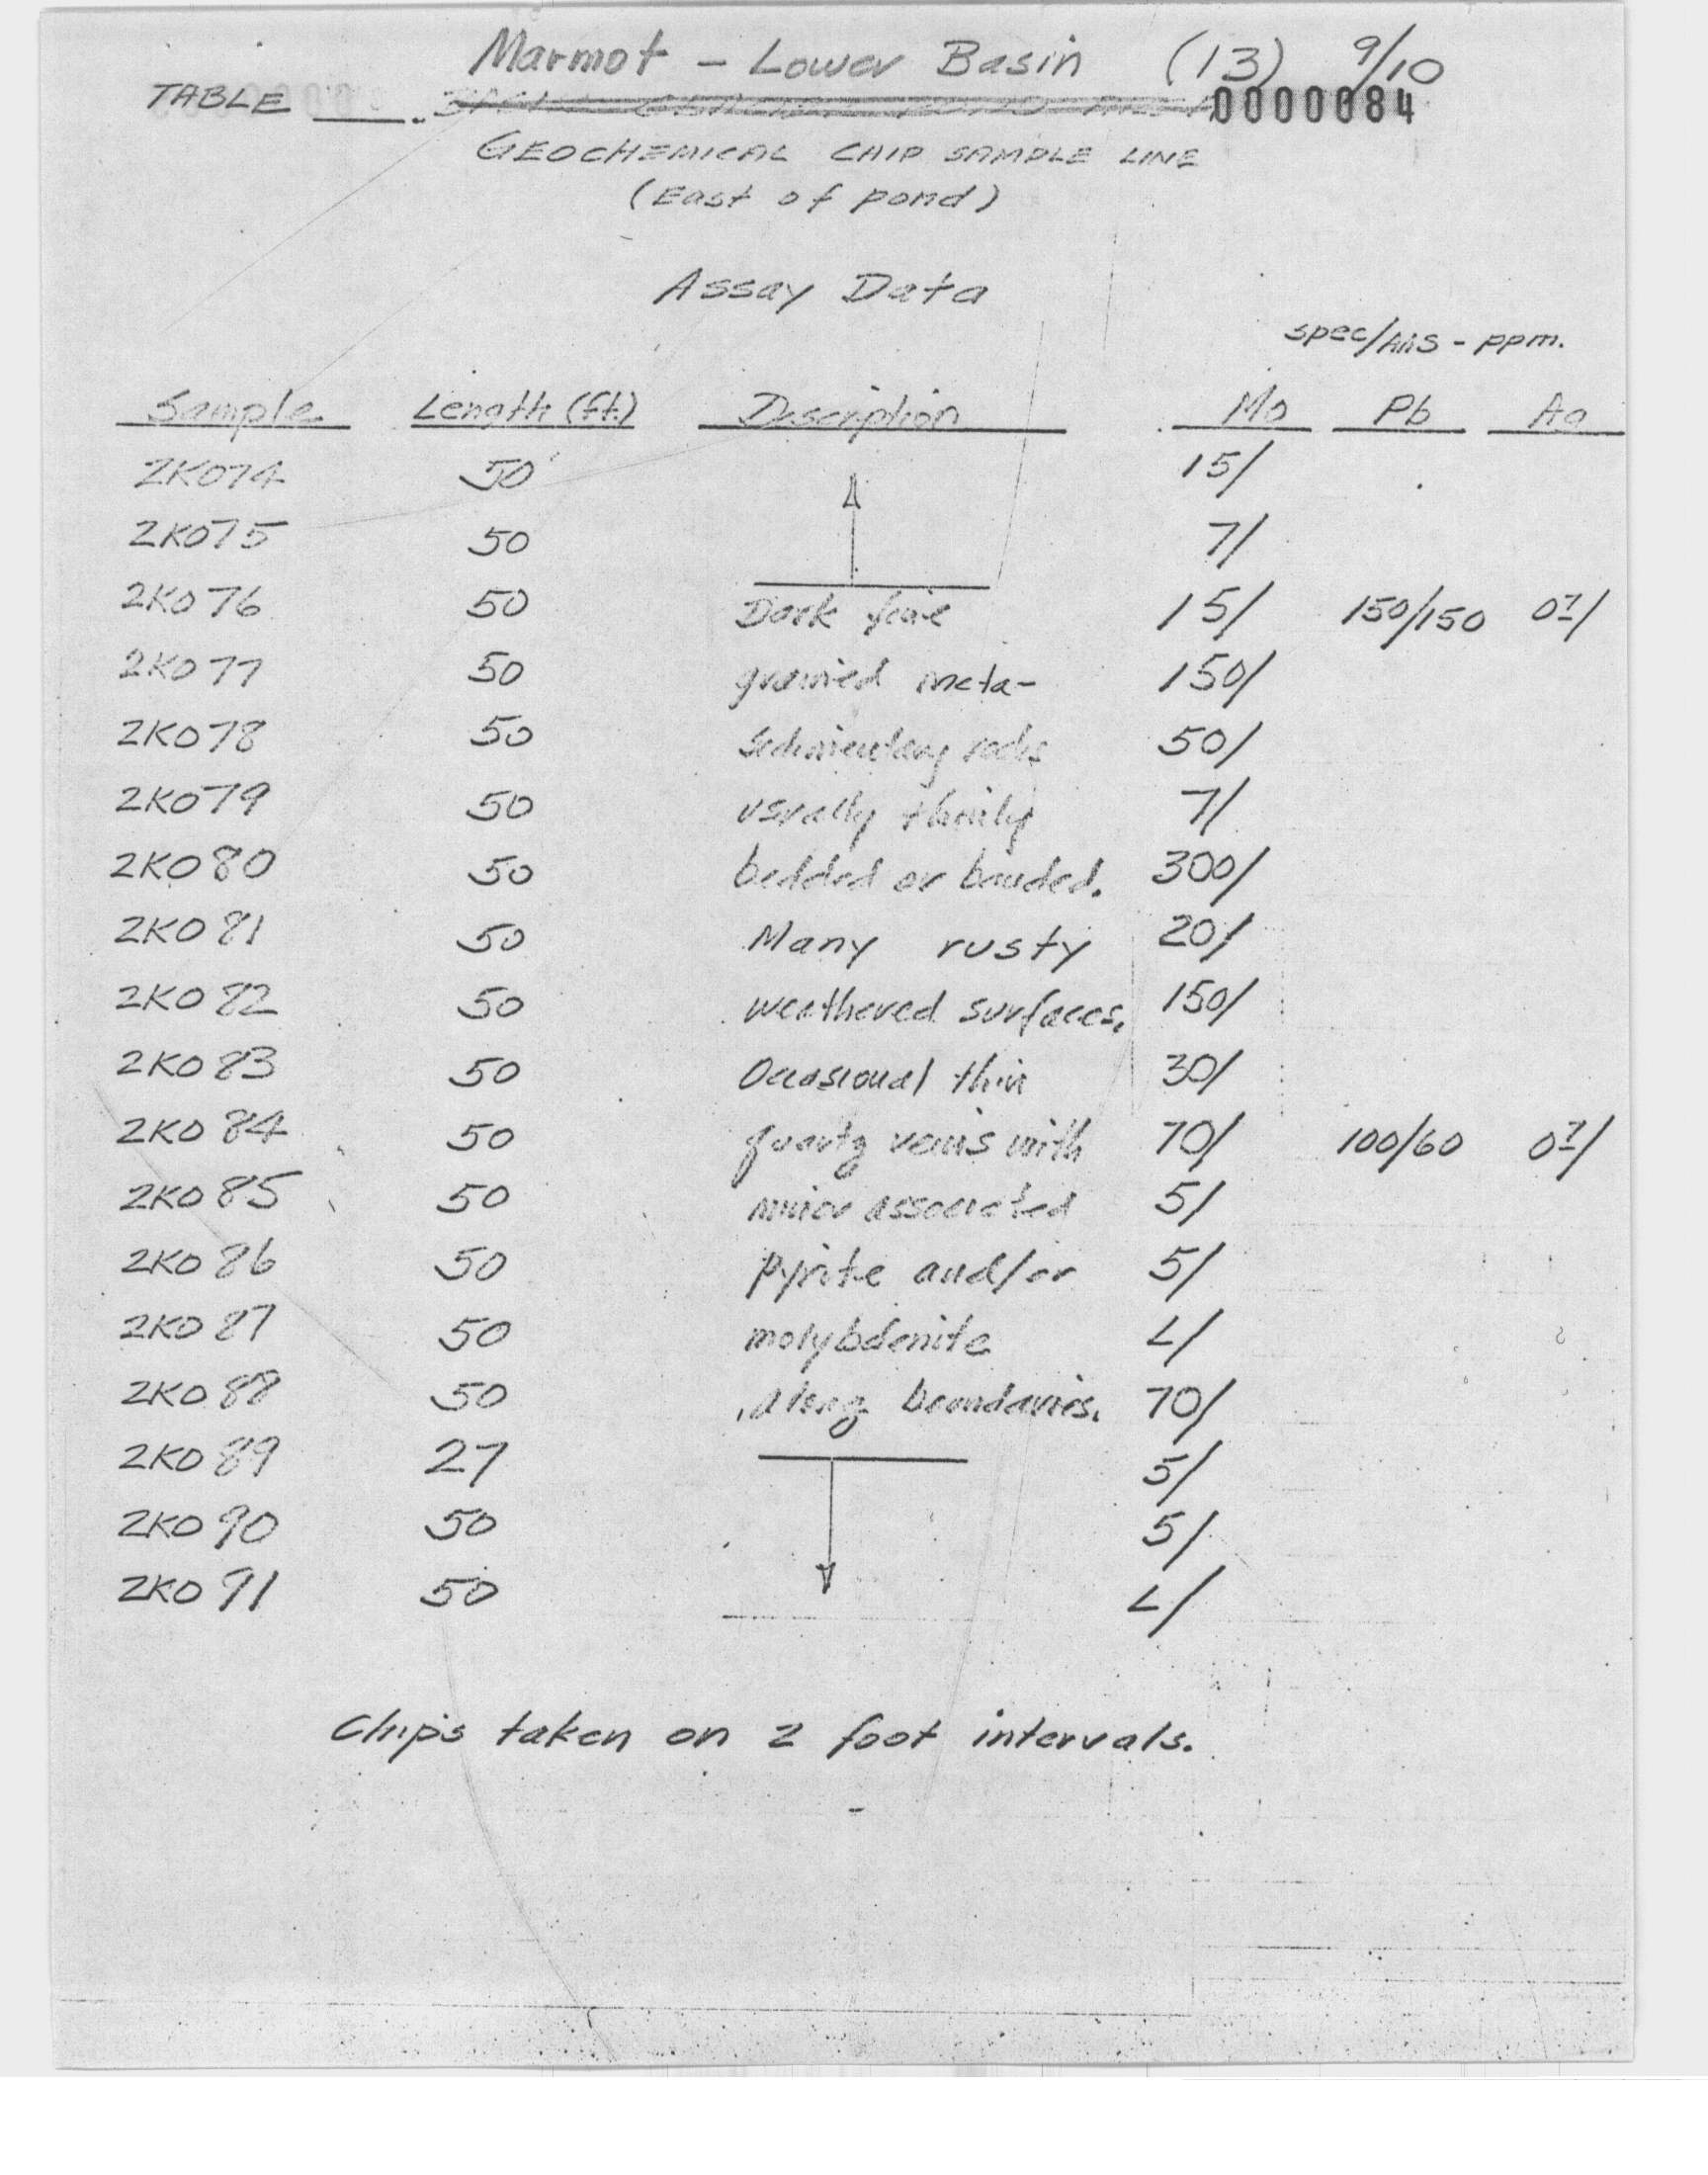 Marmot - Lower Basin (13) 9/10
TABLE ____. 0000084
GEOCHEMICAL CHIP SAMPLE LINE
(East of pond)
Assay Data
spec/AAS - ppm.
Sample Length (ft.) Description Mo Pb Ag
2K074 50' 15/
2K075 50 7/
2K076 50 Dark fine 15/ 150/150 07/
2K077 50 grained meta- 150/
2K078 50 sedimentary rocks 50/
2K079 50 usually thinly 7/
2K080 50 bedded or banded. 300/
2K081 50 Many rusty 20/
2K082 50 weathered surfaces. 150/
2K083 50 Occasional thin 30/
2K084 50 quartz veins with 70/ 100/60 07/
2K085 50 minor associated 5/
2K086 50 pyrite and/or 5/
2K087 50 molybdenite L/
2K088 50 along boundaries. 70/
2K089 27 5/
2K090 50 5/
2K091 50 L/
Chips taken on 2 foot intervals.